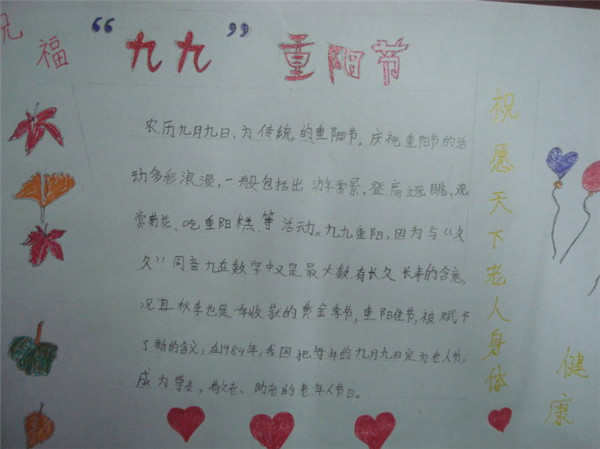 祝福
“九九”重阳节
农历九月九日、为传统的重阳节。庆祝重阳节的活
动多彩浪漫,一般包括出游赏景,登高远眺、观
赏菊花、吃重阳糕、等活动。九九重阳,因为与“久
久”同音九在数字中又是最大数有长久长寿的含意,
况且秋季也是年收获的黄金季节,重阳佳节,被赋予
了新的含义,在1989年,我国把每年的九月九日定为老人节,
成为尊老、敬老、助老的老年人节日。
祝愿天下老人身体
健康